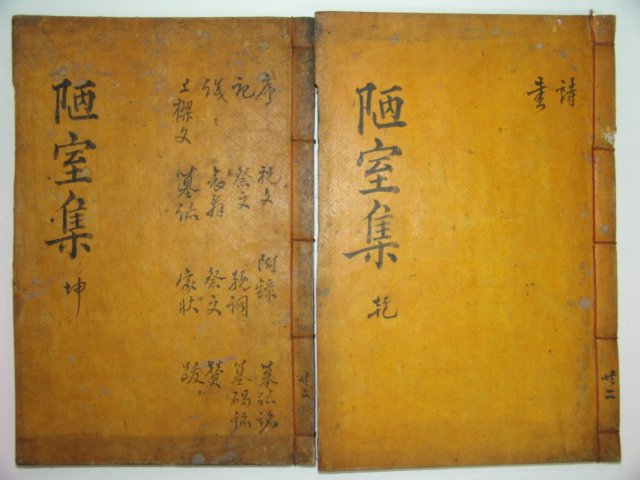 詩
書
陋室集 乾
共二
序 祝文 附錄 墓誌銘
記 祭文 輓詞 墓碣銘
哀辭 祭文 贊
上樑文 墓誌 家狀 跋
陋室集 坤
共二